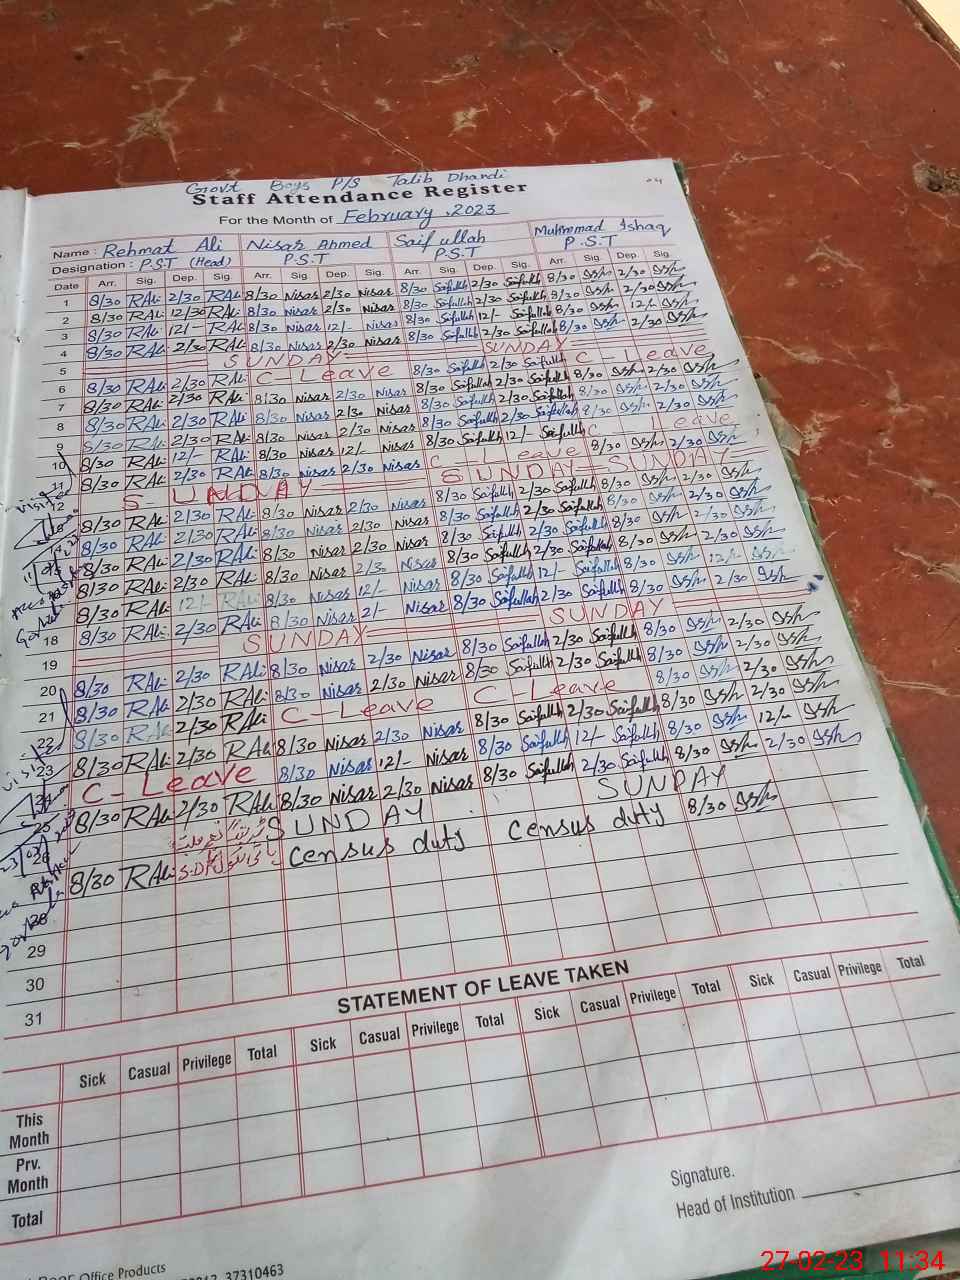 Govt Boys P/S Talib Dhandi
Staff Attendance Register
For the Month of February, 2023
Name : Rehmat Ali Nisar Ahmed Saif ullah Muhmmad Ishaq
Designation : P.S.T (Head) P.S.T P.S.T P.S.T
Date Arr. Sig. Dep. Sig. Arr. Sig. Dep. Sig. Arr. Sig. Dep. Sig. Arr. Sig. Dep. Sig.
1 8/30 RAli 2/30 RAli 8/30 Nisar 2/30 Nisar 8/30 Saifullah 2/30 Saifullah 8/30 2/30
2 8/30 RAli 12/30 RAli 8/30 Nisar 2/30 Nisar 8/30 Saifullah 2/30 Saifullah 8/30 2/30
3 8/30 RAli 12/- RAli 8/30 Nisar 12/- Nisar 8/30 Saifullah 12/- Saifullah 8/30 12/-
4 8/30 RAli 2/30 RAli 8/30 Nisar 2/30 Nisar 8/30 Saifullah 2/30 Saifullah 8/30 2/30
5 SUNDAY SUNDAY
6 8/30 RAli 2/30 RAli C-Leave 8/30 Saifullah 2/30 Saifullah C-Leave
7 8/30 RAli 2/30 RAli 8/30 Nisar 2/30 Nisar 8/30 Saifullah 2/30 Saifullah 8/30 2/30
8 8/30 RAli 2/30 RAli 8/30 Nisar 2/30 Nisar 8/30 Saifullah 2/30 Saifullah 8/30 2/30
9 8/30 RAli 2/30 RAli 8/30 Nisar 2/30 Nisar 8/30 Saifullah 2/30 Saifullah 8/30 2/30
10 8/30 RAli 12/- RAli 8/30 Nisar 12/- Nisar 8/30 Saifullah 12/- Saifullah C-Leave
11 8/30 RAli 2/30 RAli 8/30 Nisar 2/30 Nisar C-Leave 8/30 2/30
12 SUNDAY SUNDAY SUNDAY
8/30 RAli 2/30 RAli 8/30 Nisar 2/30 Nisar 8/30 Saifullah 2/30 Saifullah 8/30 2/30
8/30 RAli 2/30 RAli 8/30 Nisar 2/30 Nisar 8/30 Saifullah 2/30 Saifullah 8/30 2/30
8/30 RAli 2/30 RAli 8/30 Nisar 2/30 Nisar 8/30 Saifullah 2/30 Saifullah 8/30 2/30
8/30 RAli 2/30 RAli 8/30 Nisar 2/30 Nisar 8/30 Saifullah 2/30 Saifullah 8/30 2/30
8/30 RAli 12/- RAli 8/30 Nisar 12/- Nisar 8/30 Saifullah 12/- Saifullah 8/30 12/-
18 8/30 RAli 2/30 RAli 8/30 Nisar 2/- Nisar 8/30 Saifullah 2/30 Saifullah 8/30 2/30
19 SUNDAY SUNDAY
20 8/30 RAli 2/30 RAli 8/30 Nisar 2/30 Nisar 8/30 Saifullah 2/30 Saifullah 8/30 2/30
21 8/30 RAli 2/30 RAli 8/30 Nisar 2/30 Nisar 8/30 Saifullah 2/30 Saifullah 8/30 2/30
22 8/30 RAli 2/30 RAli C-Leave C-Leave 8/30 2/30
23 8/30 RAli 2/30 RAli 8/30 Nisar 2/30 Nisar 8/30 Saifullah 2/30 Saifullah 8/30 2/30
24 C-Leave 8/30 Nisar 12/- Nisar 8/30 Saifullah 12/- Saifullah 8/30 12/-
25 8/30 RAli 2/30 RAli 8/30 Nisar 2/30 Nisar 8/30 Saifullah 2/30 Saifullah 8/30 2/30
26 SUNDAY SUNDAY
8/30 RAli Census duty Census duty 8/30
28
29
30
31
STATEMENT OF LEAVE TAKEN
Sick Casual Privilege Total Sick Casual Privilege Total Sick Casual Privilege Total Sick Casual Privilege Total
This Month
Prv. Month
Total
Signature.
Head of Institution
Office Products
37310463
27-02-23 11:34